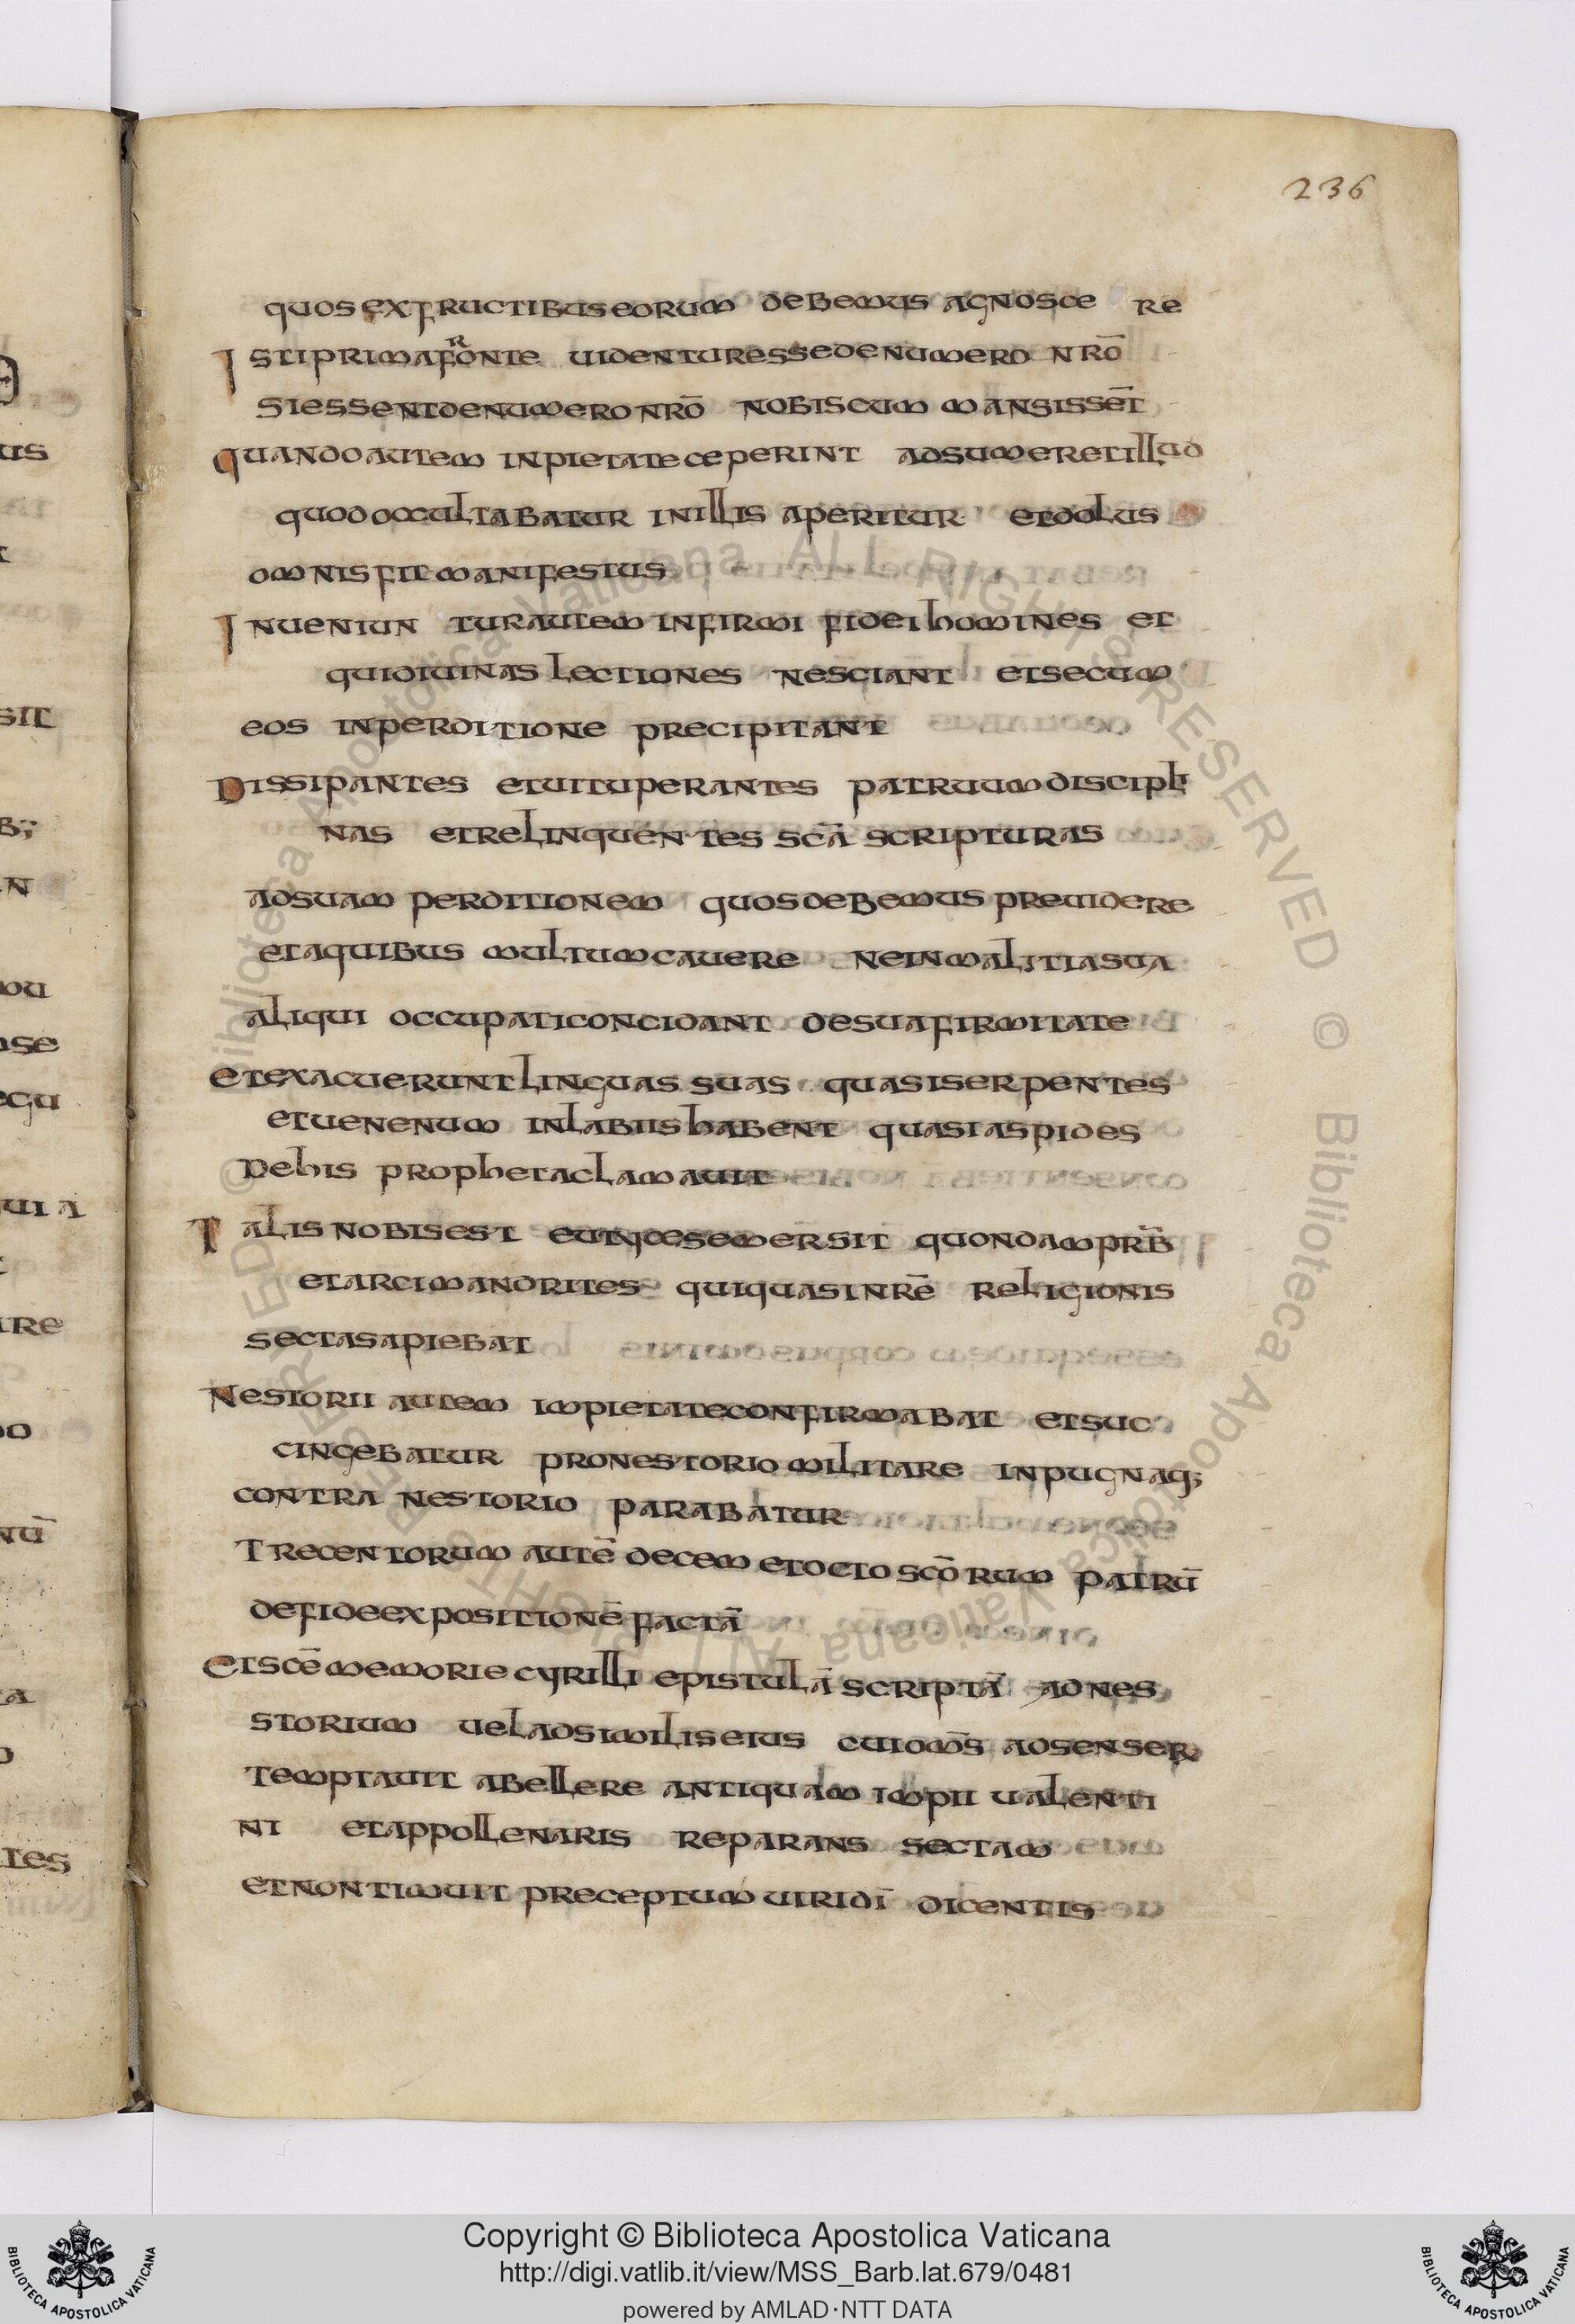 236
quos ex fructibus eorum debemus agnosce re
Isti prima fronte uidentur esse de numero nrō
si essent de numero nrō nobiscum mansissēt
Quando autem inpietate ceperint adsumere t illud
quod occultabatur in illis aperitur et dolus
omnis fit manifestus
Inueniun tur autem infirmi fidei homines et
qui diuinas lectiones nesciant et secum
eos in perditione precipitant
Dissipantes et uituperantes patruum discipli
nas et relinquentes scā scripturas
ad suam perditionem quos debemus preuidere
et a quibus multum cauere ne in malitia sua
aliqui occupati concidant de sua firmitate
Et exacuerunt linguas suas quasi serpentes
et uenenum in labiis habent quasi aspides
De his propheta clamauit
Talis nobis est semersit quondam prb̄
et arcimandrites qui quasi in rē religionis
secta sapiebat
Nestorii autem impietate confirmabat et suc
cingebatur pro nestorio militare in pugnaq;
contra nestorio parabatur
Trecentorum autē decem et octo scōrum patrū
de fide expositionē factā
Et scē memorie cyrilli epistulā scriptā ad nes
storium uel ad similis eius cui om̄s adsenser
temptauit abellere antiquam impii ualenti
ni et appollenaris reparans sectam
et non timuit preceptum uiri dī dicentis
Copyright © Biblioteca Apostolica Vaticana
http://digi.vatlib.it/view/MSS_Barb.lat.679/0481
powered by AMLAD·NTT DATA